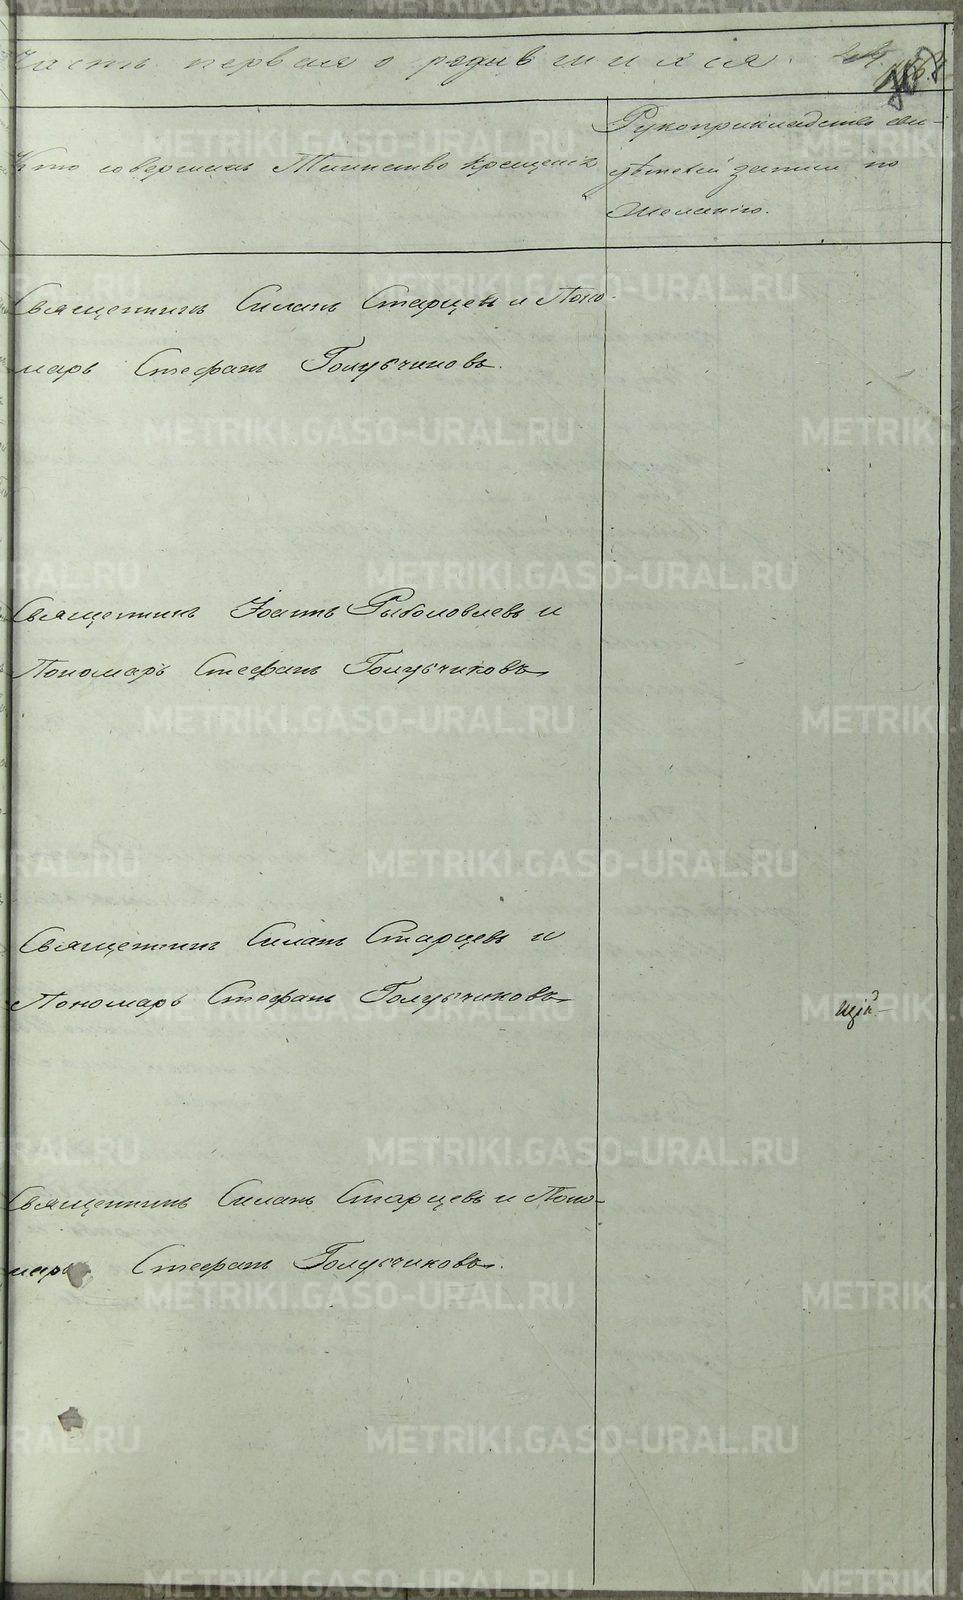 Часть первая о родившихся.
Кто совершалъ Таинство Крещенія
Рукоприкладство сви-
дѣтелей записи по
желанію.
Священникъ Силанъ Старцевъ и Поно-
марь Стефанъ Голубчиковъ.
Священникъ Іоаннъ Рыболовлевъ и
Пономарь Стефанъ Голубчиковъ
Священникъ Силанъ Старцевъ и
Пономарь Стефанъ Голубчиковъ
цій
Священникъ Силанъ Старцевъ и Поно-
марь Стефанъ Голубчиковъ.
METRIKI.GASO-URAL.RU